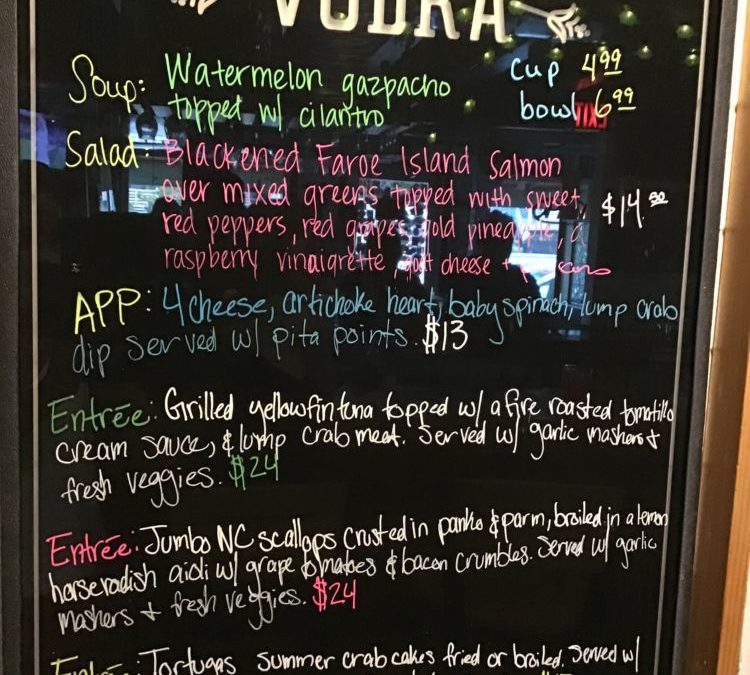 VODKA
Soup: Watermelon gazpacho cup 4.99
topped w/ cilantro bowl 6.99
Salad: Blackened Faroe Island Salmon
over mixed greens topped with sweet $14.00
red peppers, red grapes, gold pineapple, a
raspberry vinaigrette, goat cheese +
APP: 4 cheese, artichoke heart, baby spinach, lump crab
dip served w/ pita points. $13
Entrée: Grilled yellowfin tuna topped w/ a fire roasted tomatillo
cream sauce, & lump crab meat. Served w/ garlic mashers +
fresh veggies. $24
Entrée: Jumbo NC scallops crusted in panko & parm, broiled in a lemon
horseradish aioli w/ grape tomatoes & bacon crumbles. Served w/ garlic
mashers + fresh veggies. $24
Entrée: Tortugas summer crab cakes fried or broiled. Served w/